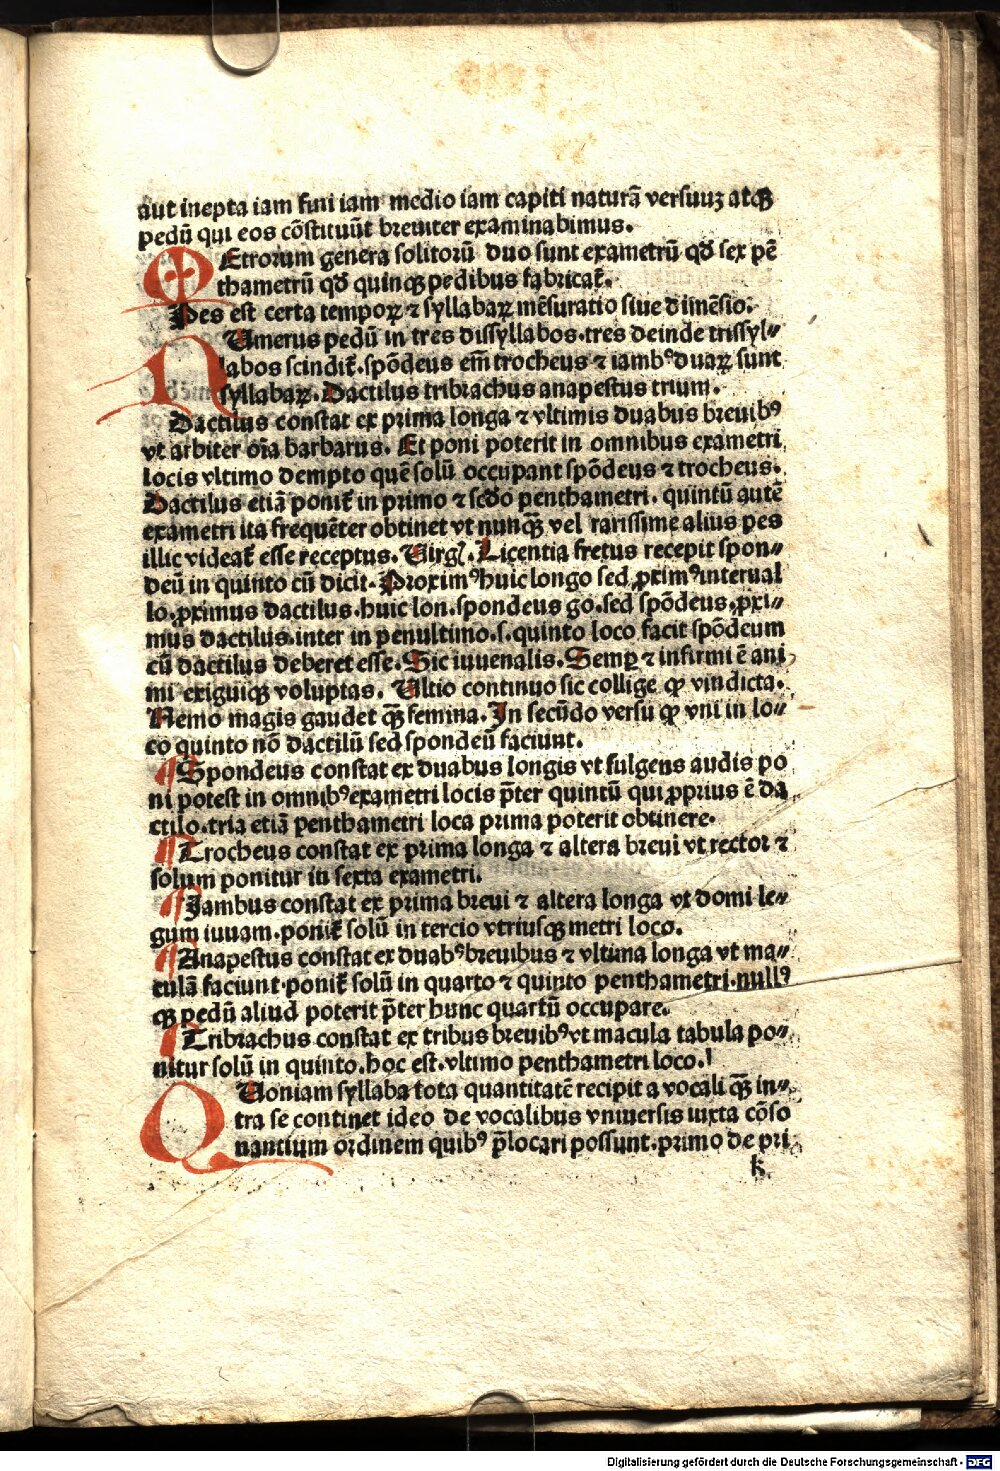 aut inepta iam fini iam medio iam capiti naturā versuuꝫ atqꝫ
pedū qui eos cōstituūt breuiter examinabimus.
MEtrorum genera solitorū duo sunt exametrū qḋ sex pē
thametrū qḋ quinqꝫ pedibus fabricat̄.
Pes est certa tempoꝝ ⁊ syllabaꝝ mēsuratio siue dimēsio.
NUmerus pedū in tres dissyllabos.tres deinde trissyl⸗
labos scindit̄.spōdeus em̄ trocheus ⁊ iambꝰ duaꝝ sunt
syllabaꝝ. Dactilus tribrachus anapestus trium.
Dactilus constat ex prima longa ⁊ vltimis duabus breuibꝰ
vt arbiter oīa barbarus. Et poni poterit in omnibus exametri
locis vltimo dempto quē solū occupant spōdeus ⁊ trocheus.
Dactilus etiā ponit̄ in primo ⁊ scḋo penthametri. quintū autē
exametri ita frequēter obtinet vt nunqꝫ̄ vel rarissime alius pes
illic videat̄ esse receptus. Virgl̓. Licentia fretus recepit spon⸗
deū in quinto cū dicit. Proximꝰ huic longo sed ꝓximꝰ interual
lo.ꝓximus dactilus.huic lon.spondeus go.sed spōdeus.ꝓxi⸗
mus dactilus.inter in penultimo.s.quinto loco facit spōdeum
cū dactilus deberet esse. Sic iuuenalis. Semꝑ ⁊ infirmi ē ani
mi exiguiqꝫ voluptas. Ultio continuo sic collige ꝙ vindicta.
Nemo magis gaudet qꝫ̄ femina. In secūdo versu ꝙ vni in lo⸗
co quinto nō dactilū sed spondeū faciunt.
¶ Spondeus constat ex duabus longis vt fulgens audis po
ni potest in omnibꝰ exametri locis p̄ter quintū qui ꝓprius ē da
ctilo.tria etiā penthametri loca prima poterit obtinere.
¶ Trocheus constat ex prima longa ⁊ altera breui vt rector ⁊
solum ponitur in sexta exametri.
¶ Iambus constat ex prima breui ⁊ altera longa vt domi le⸗
gum iuuam.ponit̄ solū in tercio vtriusqꝫ metri loco.
¶ Anapestus constat ex duabꝰ breuibus ⁊ vltima longa vt ma⸗
culā faciunt.ponit̄ solū in quarto ⁊ quinto penthametri.nullꝰ
qꝫ pedū aliud poterit p̄ter hunc quartū occupare.
¶ Tribrachus constat ex tribus breuibꝰ vt macula tabula po⸗
nitur solū in quinto.hoc est.vltimo penthametri loco.
QUoniam syllaba tota quantitatē recipit a vocali qꝫ̄ in⸗
tra se continet ideo de vocalibus vniuersis iuxta cōso
nantium ordinem quibꝰ p̄locari possunt.primo de pri
k
Digitalisierung gefördert durch die Deutsche Forschungsgemeinschaft - DFG